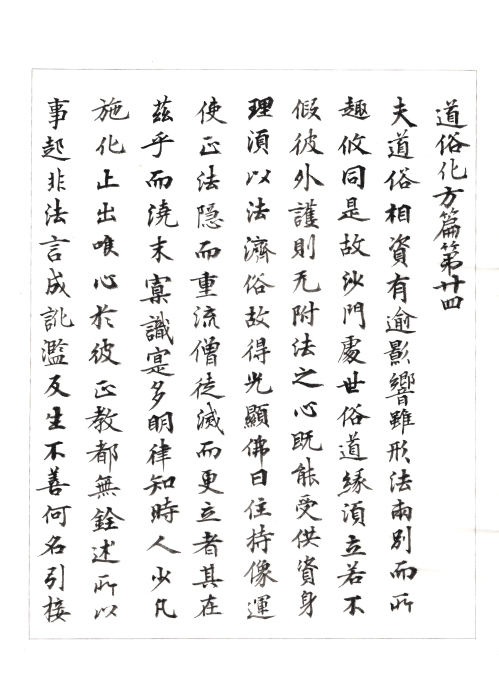 道俗化方篇第廿四
夫道俗相資有逾影響雖形法兩別而所
趣攸同是故沙門處世俗道緣須立若不
假彼外護則无附法之心既能受供資身
理須以法濟俗故得光顯佛日住持像運
使正法隱而重流僧徒滅而更立者其在
茲乎而澆末寡識寔多明律知時人少凡
施化止出唯心於彼正教都無銓述所以
事起非法言成訛濫反生不善何名引接